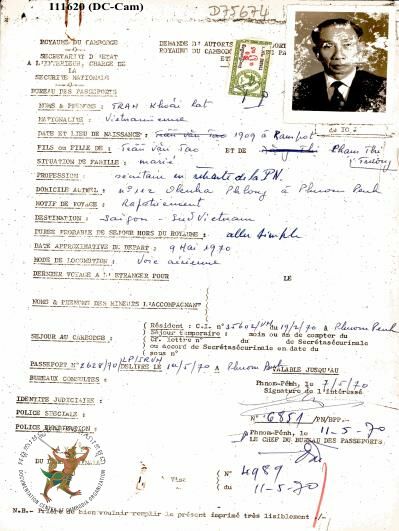 111620 (DC-Cam)
D75674
ROYAUME DU CAMBODGE
SECRETARIAT D'ETAT
A L'INTERIEUR, CHARGE DE
LA
SECURITE NATIONALE
BUREAU DES PASSEPORTS
DEMANDE D'AUTORIS
ROYAUME DU CAMBO
ET
NOMS & PRENOMS : TRAN Khoái Rat
NATIONALITE : Vietnamienne
DATE ET LIEU DE NAISSANCE : 1909 à Kampot
FILS ou FILLE DE : Trân Van Tao ET DE Pham Thi
SITUATION DE FAMILLE : marié
PROFESSION : en retraite de la P.N.
DOMICILE ACTUEL : n° 112 Oknha Phlong à Phnom Penh
MOTIF DE VOYAGE : Rapatriement
DESTINATION : Saigon - Sud Vietnam
DUREE PROBABLE DE SEJOUR HORS DU ROYAUME : aller simple
DATE APPROXIMATIVE DU DEPART : 9 Mai 1970
MODE DE LOCOMOTION : Voie aérienne
DERNIER VOYAGE A L'ETRANGER POUR LE
NOMS & PRENOMS DES MINEURS L'ACCOMPAGNANT
SEJOUR AU CAMBODGE :
Résident : C.I. n° 35602/VM du 19/2/70 à Phnom Penh
Séjour temporaire : mois ou an de compter du
CF. lettre n° du de Secrétasécurinale
ou accord de Secrétasécurinale en date du
sous n°
PASSEPORT N° 2628/70/LP/SRVN DELIVRE LE à Phnom Penh VALABLE JUSQU'AU
BUREAUX CONSULTES :
Phnom-Pénh, le 7/5/70
Signature de l'intéressé
IDENTITE JUDICIAIRE :
POLICE SPECIALE :
POLICE
N° 6851 /PN/BPP.-
Phnom-Pénh, le 11-5-70
LE CHEF DU BUREAU DES PASSEPORTS,
Visa
N° 4989
du 11-5-70
DOCUMENTATION CENTER OF CAMBODIA ORGANIZATION
N.B.- Prière de bien vouloir remplir le présent imprimé très lisiblement